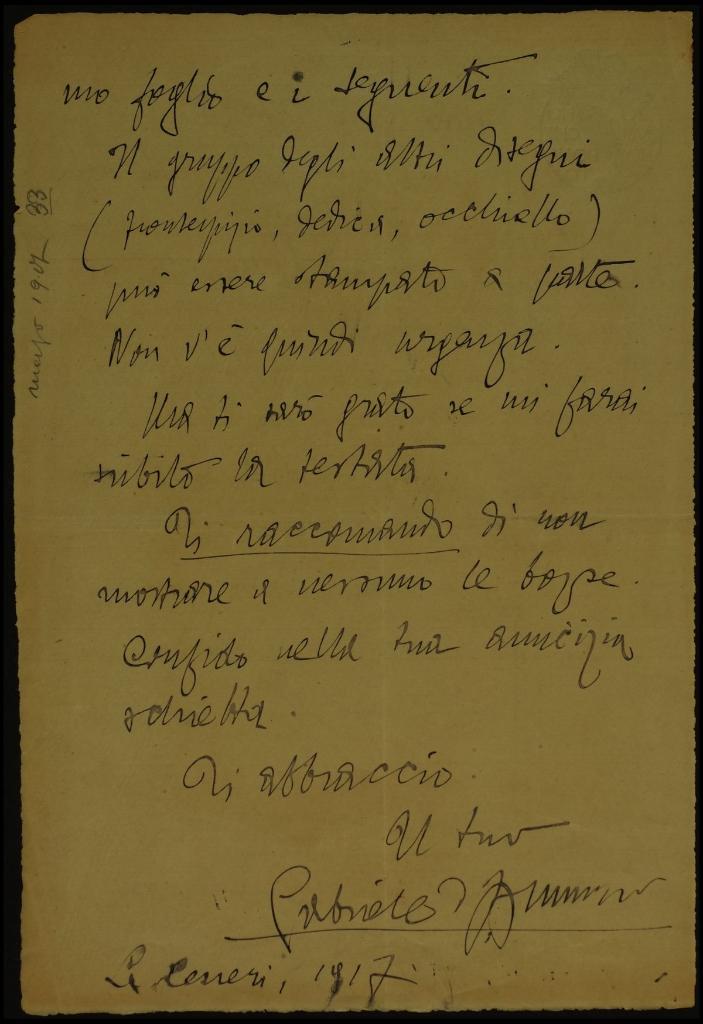 mo foglio e i seguenti.
Il gruppo degli altri disegni
(frontespizio, dedica, occhiello)
può essere stampato a parte.
Non v'è quindi urgenza.
Ma ti sarò grato se mi farai
sùbito la testata.
Ti raccomando di non
mostrare a nessuno le bozze.
Confido nella tua amicizia
schietta.
Ti abbraccio.
Il tuo
Gabriele d'Annunzio
Le Ceneri, 1917.
marzo 1917 33